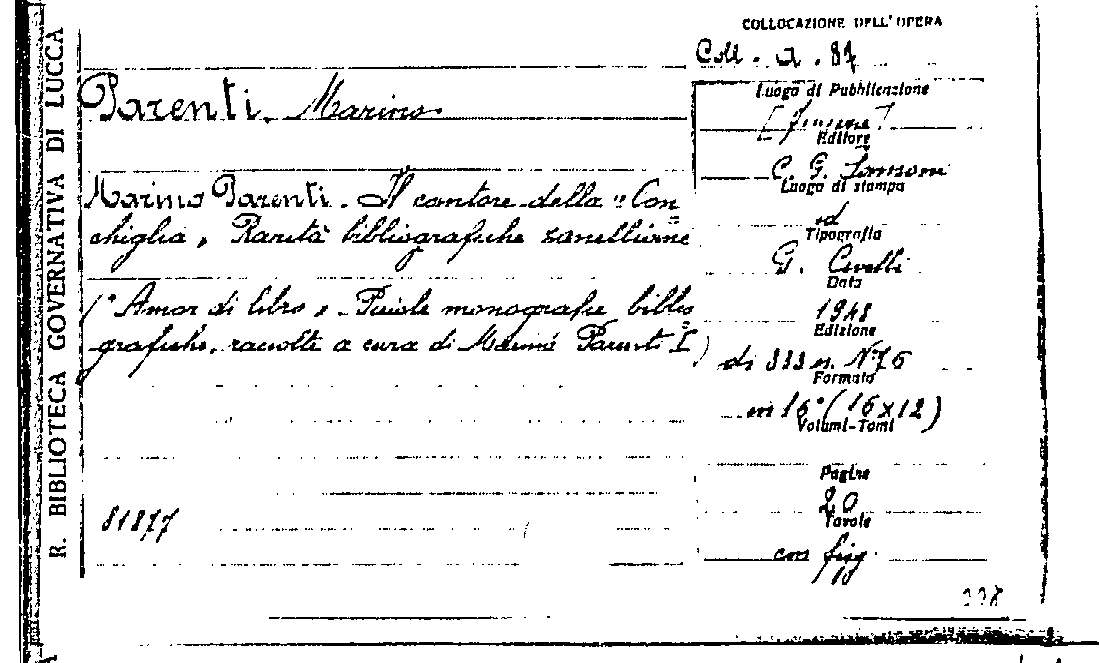 R. BIBLIOTECA GOVERNATIVA DI LUCCA
COLLOCAZIONE DELL'OPERA
Coll. a. 87
Parenti, Marino
Luogo di Pubblicazione
[Firenze]
Editore
C. G. Sansoni
Luogo di stampa
id
Tipografia
G. Civelli
Data
1948
Edizione
di 333 n. N° 76
Formato
in 16° (16x12)
Volumi-Tomi
Pagine
20
Tavole
con figg.
Marino Parenti. Il cantore della "Con=
chiglia". Rarità bibliografiche zanelliane
("Amor di libro". Piccole monografie biblio=
grafiche, raccolte a cura di Marino Parenti I)
81877